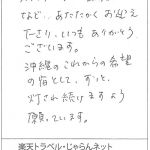 など、あたたかくお迎え
下さり、いつもありがとう
ございます。
沖縄のこれからの希望
の宿として、ずっと、
灯され続けますよう
願っています。
楽天トラベル・じゃらんネット